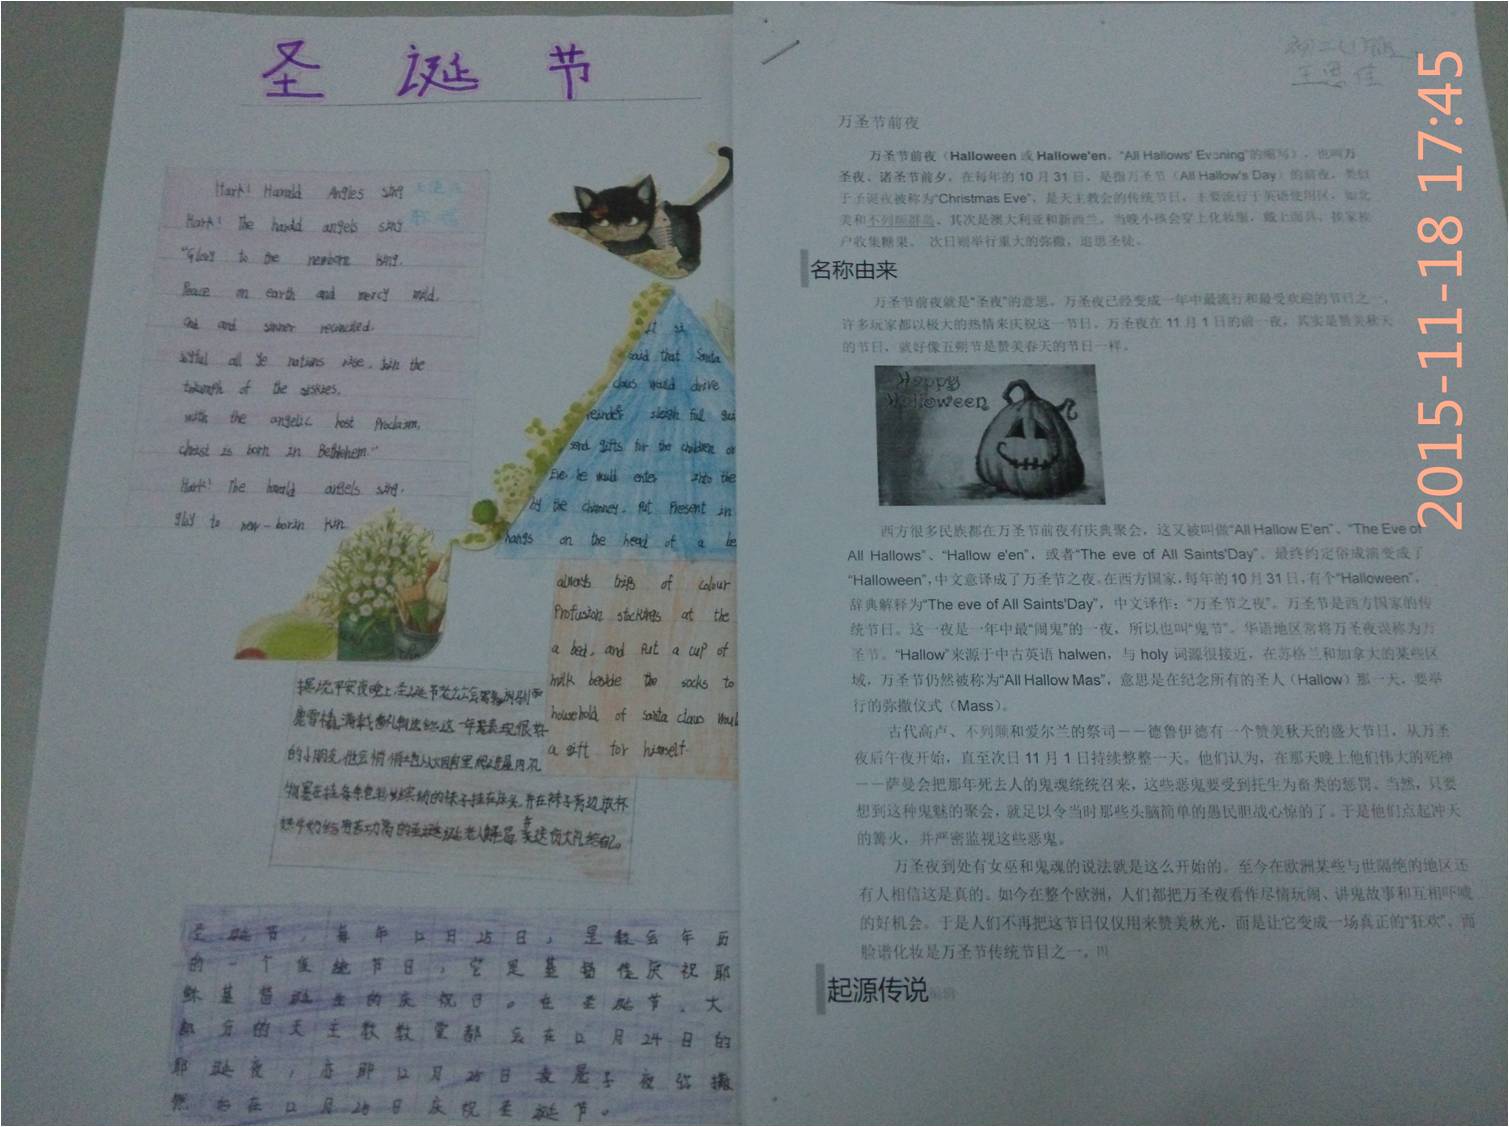 圣诞节
Hark! Harald Angles sing
Hark! The harald angels sing
"Glory to the newborn king.
Peace on earth and mercy mild,
and sinner reconciled.
Joyful all ye nations rise. Join the
of the
with the angelic host Proclaim.
christ is born in Bethlehem."
Hark! The harald angels sing.
glory to new-born
It si
said that Santa
claus would drive
reinder sleigh full
send gifts for the children on
Eve he would enter into the
by the chimney. Put Present in
hangs on the head of a be
always trips of colour
Profusion stockings at the
a bed, and Put a cup of
milk beside the socks to
household of santa claus
a gift for himself.
据说平安夜晚上,圣诞节老人会驾着
鹿雪橇,满载
的小朋友,他会悄悄地从大烟囱里
物塞在挂每条色彩缤纷的袜子挂在床头,并在袜子旁边放杯
圣诞节,每年12月25日,是教会年历
的一个传统节日,它是基督徒庆祝耶
稣基督诞生的庆祝日。在圣诞节,大
部分的天主教教堂都会在12月24日的
耶诞夜,亦即12月25日凌晨子夜弥撒
12月25日庆祝圣诞节。
初二(1)班
王思佳
万圣节前夜
万圣节前夜(Halloween 或 Hallowe'en,“All Hallows' Evening”的缩写),也叫万
圣夜、诸圣节前夕,在每年的 10 月 31 日,是指万圣节(All Hallow's Day)的前夜,类似
于圣诞夜被称为“Christmas Eve”,是天主教会的传统节日,主要流行于英语使用区,如北
美和不列颠群岛、其次是澳大利亚和新西兰。当晚小孩会穿上化妆服,戴上面具,挨家挨
户收集糖果。 次日则举行重大的弥撒,追思圣徒。
名称由来
万圣节前夜就是“圣夜”的意思。万圣夜已经变成一年中最流行和最受欢迎的节日之一,
许多玩家都以极大的热情来庆祝这一节日。万圣夜在 11 月 1 日的前一夜,其实是赞美秋天
的节日,就好像五朔节是赞美春天的节日一样。
Happy
Halloween
西方很多民族都在万圣节前夜有庆典聚会,这又被叫做“All Hallow E'en”、“The Eve of
All Hallows”、“Hallow e'en”,或者“The eve of All Saints'Day”。最终约定俗成演变成了
“Halloween”,中文意译成了万圣节之夜。在西方国家,每年的 10 月 31 日,有个“Halloween”,
辞典解释为“The eve of All Saints'Day”,中文译作:“万圣节之夜”。万圣节是西方国家的传
统节日。这一夜是一年中最“闹鬼”的一夜,所以也叫“鬼节”。华语地区常将万圣夜误称为万
圣节。“Hallow”来源于中古英语 halwen,与 holy 词源很接近,在苏格兰和加拿大的某些区
域,万圣节仍然被称为“All Hallow Mas”,意思是在纪念所有的圣人(Hallow)那一天,要举
行的弥撒仪式(Mass)。
古代高卢、不列颠和爱尔兰的祭司——德鲁伊德有一个赞美秋天的盛大节日,从万圣
夜后午夜开始,直至次日 11 月 1 日持续整整一天。他们认为,在那天晚上他们伟大的死神
——萨曼会把那年死去人的鬼魂统统召来,这些恶鬼要受到托生为畜类的惩罚。当然,只要
想到这种鬼魅的聚会,就足以令当时那些头脑简单的愚民胆战心惊的了。于是他们点起冲天
的篝火,并严密监视这些恶鬼。
万圣夜到处有女巫和鬼魂的说法就是这么开始的。至今在欧洲某些与世隔绝的地区还
有人相信这是真的。如今在整个欧洲,人们都把万圣夜看作尽情玩闹、讲鬼故事和互相吓唬
的好机会。于是人们不再把这节日仅仅用来赞美秋光,而是让它变成一场真正的“狂欢”。而
脸谱化妆是万圣节传统节目之一。
起源传说
2015-11-18 17:45